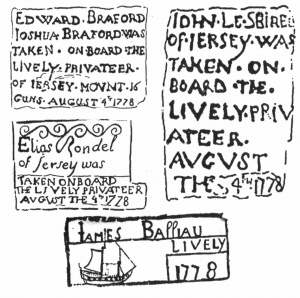 EDWARD. BRAFORD
IOSHUA BRAFORD WAS
TAKEN. ON BOARD THE
LIVELY. PRIVATEER.
OF IERSEY. MOVNT. 16
GUNS. AUGUST 4th 1778
IOHN. LE. SBIREL
OF IERSEY. WAS
TAKEN. ON.
BOARD. THE.
LIVELY. PRIV
ATEER.
AVGVST
THE 4TH 1778
Elias Rondel
of Jersey was
TAKEN ON BOARD
THE LIVELY PRIVATEER
AVGUST THE 4TH 1778
IAMES BALLIAU
LIVELY
1778